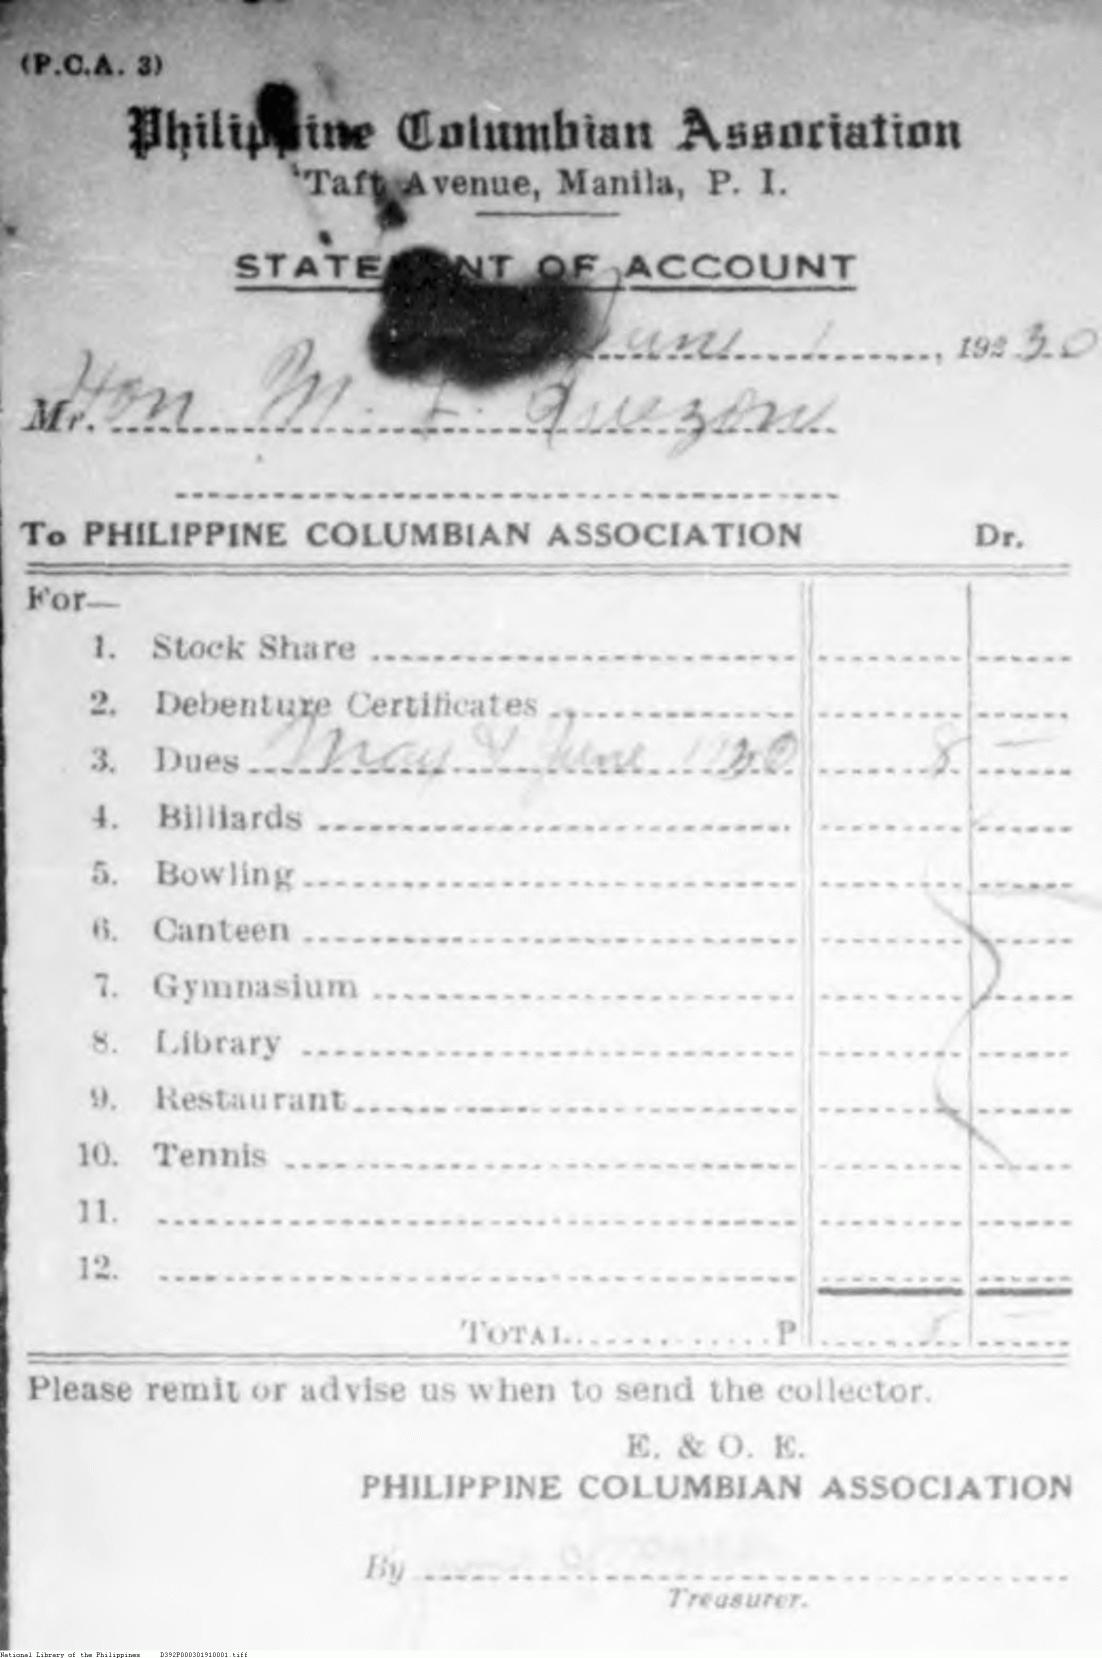 (P.C.A. 3)
Philippine Columbian Association
Taft Avenue, Manila, P. I.
STATEMENT OF ACCOUNT
June 1, 192 30
Mr. Hon M. L. Quezon
To PHILIPPINE COLUMBIAN ASSOCIATION Dr.
For—
1. Stock Share
2. Debenture Certificates
3. Dues May & June 1930 8 —
4. Billiards
5. Bowling
6. Canteen
7. Gymnasium
8. Library
9. Restaurant
10. Tennis
11.
12.
TOTAL P 8 —
Please remit or advise us when to send the collector.
E. & O. E.
PHILIPPINE COLUMBIAN ASSOCIATION
By
Treasurer.
National Library of the Philippines D392P000301910001.tiff